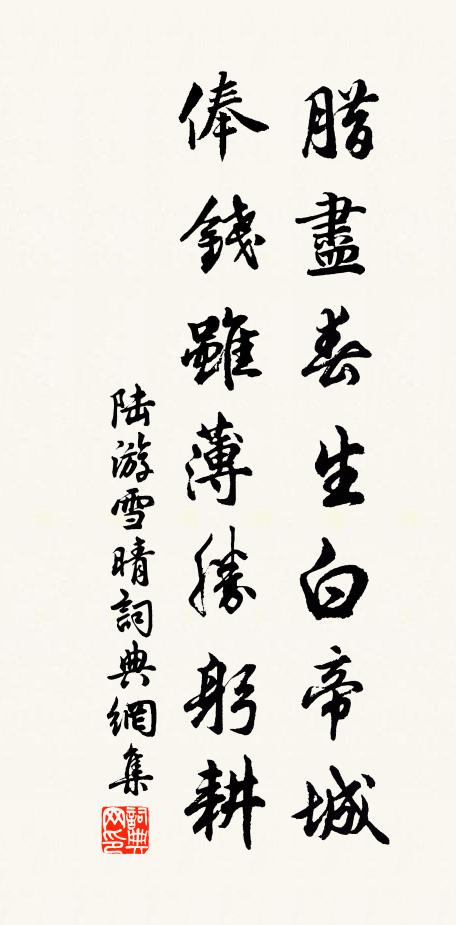 腊盡春生白帝城
俸錢雖薄勝躬耕
陆游雪晴詞典網集
詞典网印